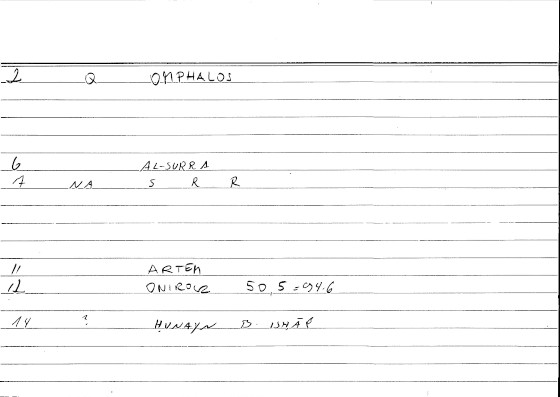 2 Q OMPHALOS
6 AL-SURRA
7 NA S R R
11 ARTEM
12 ONIROCR 50,5 = 94.6
14 ? ḤUNAYN B. ISḤĀQ